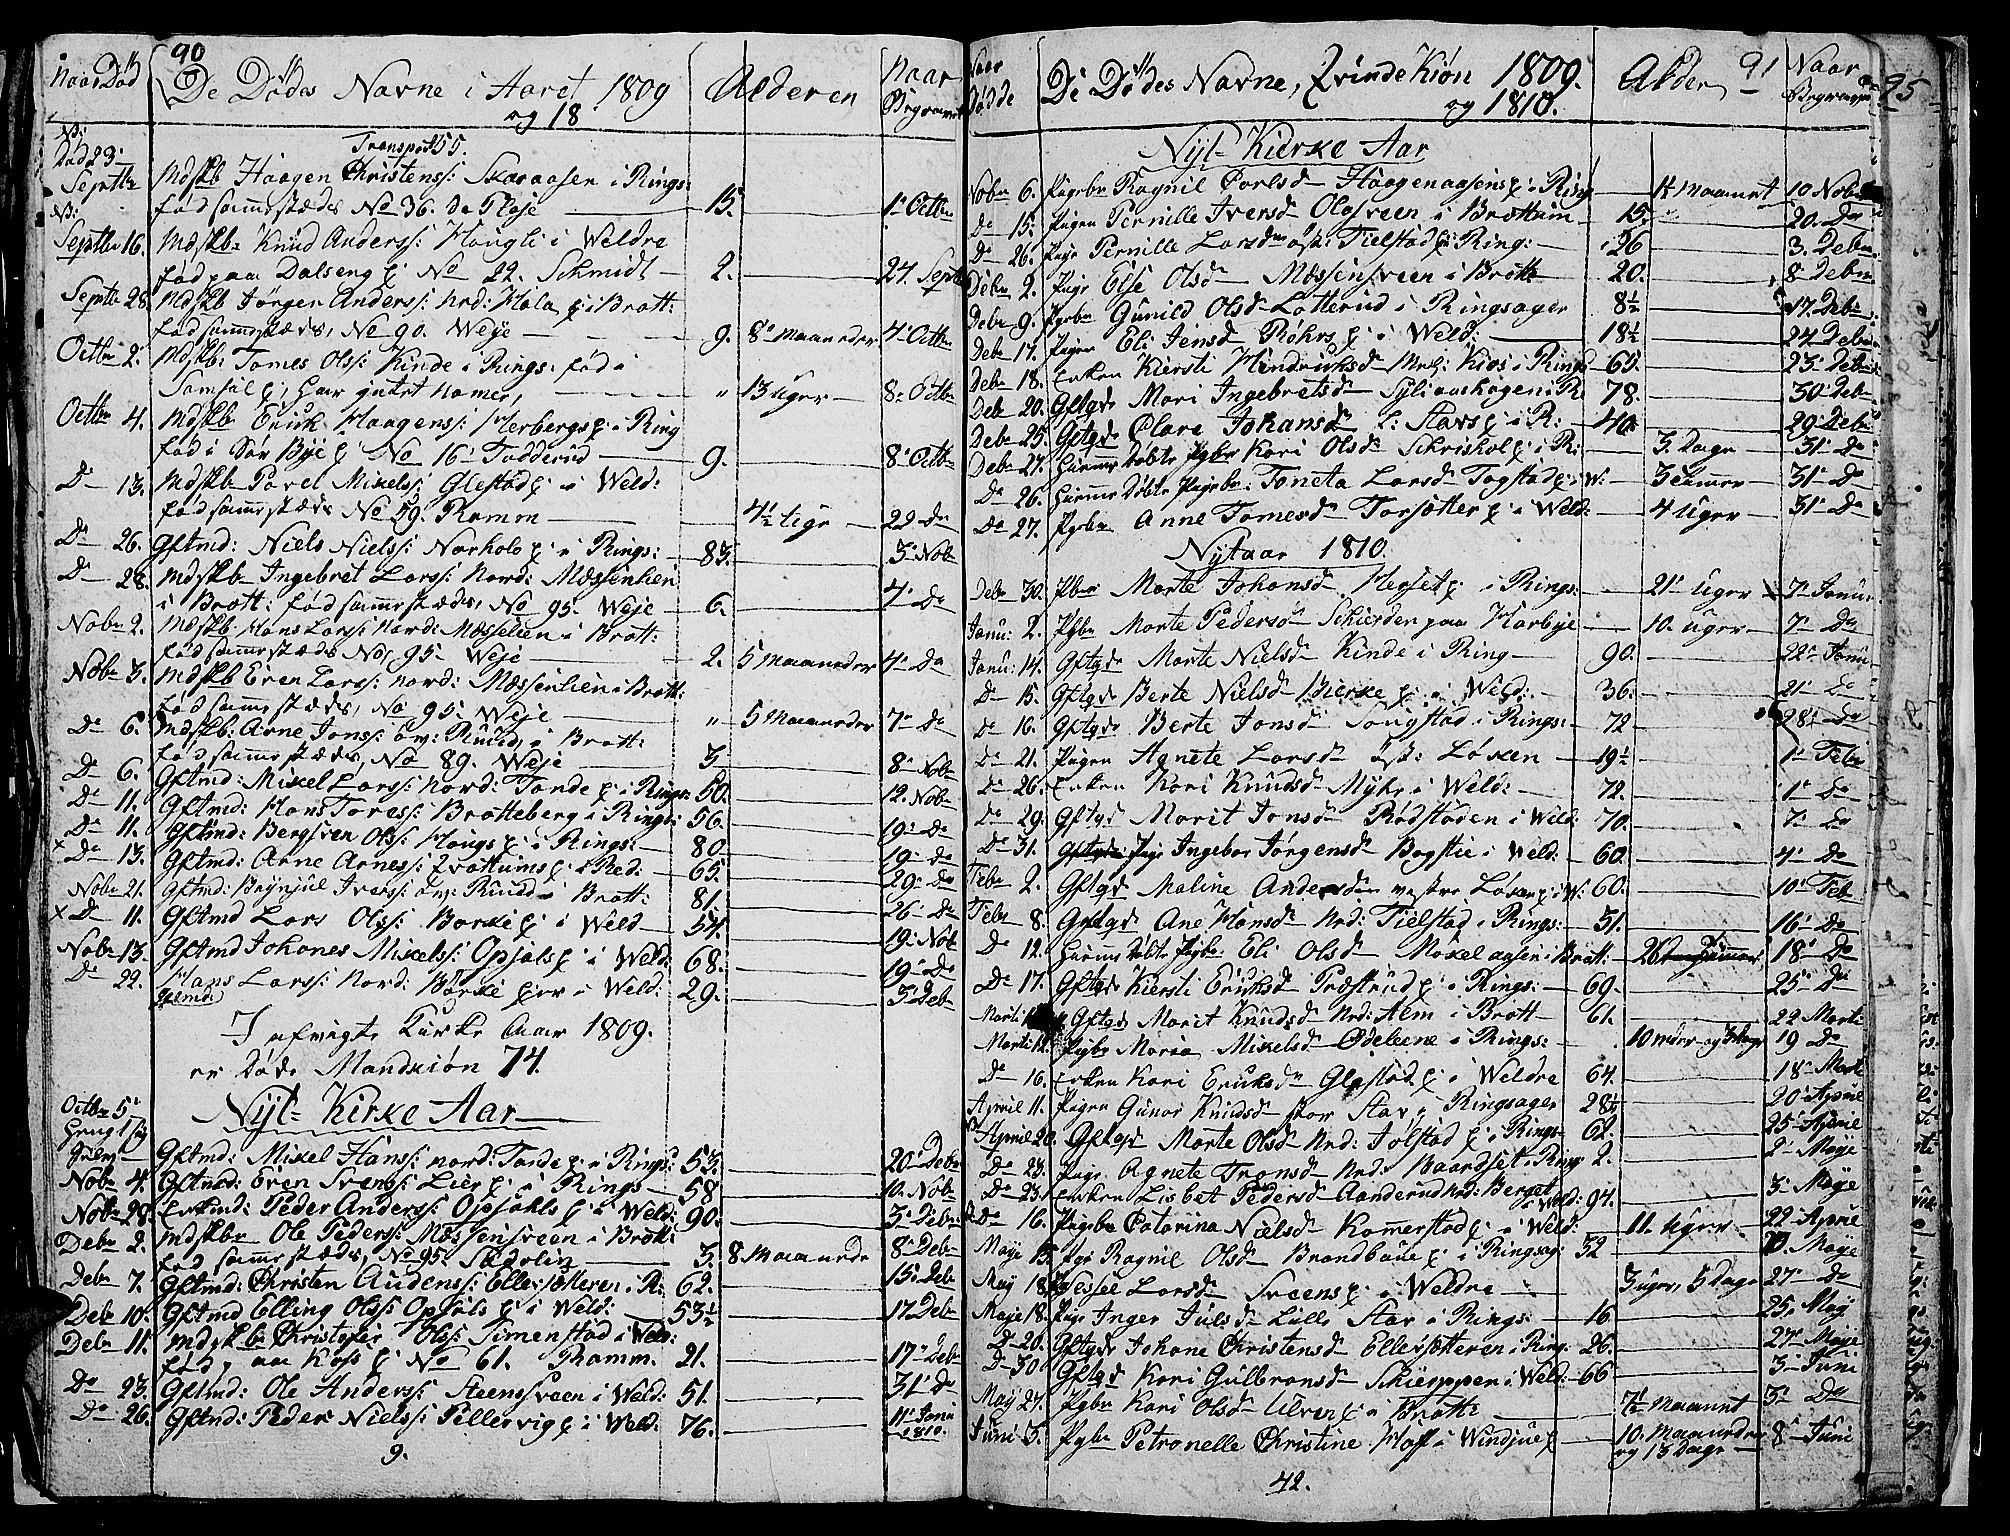 90
Naar Død
De Dødes Navne i Aaret 1809
og 18
Alderen
Naar Begravet
Transport 55.
Død 23 Septbr Mdskb Haagen Christenss: Skaraasen i Rings:
fød sammestædes No 36. De Place 15. 1 Octbr
Septbr 16. Mdskb: Knud Anderss: Hougli i Weldre
fød paa Dalseng No 22. Schmidt 2. 24 Septb
Septbr 28. Mdskb Jørgen Anderss: nrd: Hola i Brøtt:
fød sammestæds, No 90. Weje 9. 8 Maaneder 4 Octbr
Octbr 2. Mdskb: Tomes Olss: Kinde i Rings: fød i
har intet Nomer, " 13 Uger 8 Octbr
Octbr 4. Mdskb Erick Haagenss: Herberg i Ring
fød i Sør Bye No 16 Todderud 9. 8 Octbr
D 13. Mdskb Povel Mikelss: Glestad i Weld:
fød sammestæds No 59. Ramm 4½ Uge 22 D
D 26. Gftmd: Niels Nielss: Narholo i Rings: 83. 3 Nob
D 28. Mdskb Ingebret Larss: Nord: Mæssenlien
i Brøtt: fød sammestæds, No 95. Weje 6. 4 D
Nobr 2. Mdskb: Hans Larss: Nord: Mæsselien i Brøtt:
fød sammestæds No, 95. Weje 2. 5 Maaneder 4 D
Nobr 3. Mdskb Even Larss: nord: Mæssenlien i Brøtt:
fød sammestæds, No 95. Weje " 5 Maaneder 7 D
D 6. Mdskb: Arne Jonss: øv: Ruud i Brøtt:
fød sammestæds, No 89. Weje 3 8 Nob
D 6. Gftmd: Mikel Larss: nord: Tande i Rings: 50. 12. Nob
D 11. Gftmd: Hans Toress: Bratteberg i Rings: 56. 19 D
D 11. Gftmd: Bergsven Olss: Hougs i Rings: 80 19 D
x D 13. Gftmd: Arne Arness: i Red: 65. 29 D
Nobr 21. Gftmd: Brynjul Iverss: øv: Ruud i Brøtt: 81. 26 D
x D 11. Gftmd Lars Olss: Borke i Weld 54. 19 Nob
Nobr 13. Gftmd Johanes Mikelss: Opsals i Weld 68. 19 D
D 22. Hans Larss: Nord: Børke i Weld: 29. 3 Deb
Gftmd:
I afvigte Kirke Aar 1809.
er Døde Mandkiøn 74.
Nyt Kirke Aar
Octbr 5 Gftmd: Mikel Hanss: nord: Tande i Rings: 53. 20 Debr
Nobr 4. Gftmd: Even Svens: Lier i Rings 58 10. Nob
Nobr 28. Enkmd: Peder Anderss: Opsahls i Weld: 90. 3 Debr:
Debr 2. Mdskb: Ole Pederss: Mæssensveen i Brøtt:
fød sammestæds, No 95. Skadolin 3. 8 Maanede 8 Deb
Debr 7. Gftmd: Christen Audenss: Ellersætteren i R: 62. 15 Deb
Debr 10. Gftmd Elling Olss: Opsals i Weld: 53½ 17 Deb
Debr 11. Mdskb: Christopher Olss: Simenstad i Weld:
fød paa Koss No 61. Ramm. 21. 17 Deb
D 23. Gftmd: Ole Anderss: Steensveen i Weld: 51. 31 D
D 26. Gftmd: Peder Nielss: Pellervig i Weld: 76. 11 Janu 1810.
9.
Naar Døde
De Dødes Navne, Qvinde Kiøn 1809.
og 1810.
Alder
91
Naar Begravet
95
Nyt Kirke Aar
Nobr 6. Pigebr Ragnil Povlsd Haagenaasens i Ring 1½ Maanet 10 Nob
D 15. Pigen Pernille Iversd Olosveen i Brøttum 15. 20. D
D 26. Pige Pernille Larsd øst: Tielstad i Ring: 26 3. Debr
Debr 2. Pige Else Olsd Mæssensveen i Brøtt 20. 8 Deb
Debr 9. Pigebr Gunild Olsd Lotterud i Ringsager 8½ 17. Deb
Debr 17. Pigen Eli Jensd Røhrs i Weld: 18½ 24 Deb
Debr 18. Enken Kiersti Hendricksd Mel: Kios i Rings 65. 23 Deb
Debr 20. Gftgd Mari Ingebretsd Syliaashogen i R 78. 30 Deb
Debr 25. Gftgd Clare Johansd L: Stavs i R: 40. 29 Deb
Debr 27. Hiemme Døbte Pigebr Kari Olsd Schriskol i R: 3 Dage 31 D
D 26. Hiemme Døbte Pigebr: Toneta Larsd Togstad i W: 3 Timer 31 D
D 27. Pigebr Anne Tomesd Torsætter i Weld: 4 Uger 31 D
Nytaar 1810.
Debr 30. Pbr Marte Johansd Hersæt i Rings: 21 Uger 7 Janu:
Janu: 2. Pigebr Marte Pedersd Schierden paa Harbye 10. Uger 7 D
Janu: 14. Gftgd Marte Nielsd Kinde i Ring 90. 22 Janu
D 15. Gftgd Berte Nielsd Bierke i Weld: 36. 21 D
D 16. Gftgd Berte Jonsd Tougstad i Rings: 72 28 D
D 21. Pigen Agnete Larsd Øst: Løken 19½ 1 Feb
D 26. Enken Kari Knudsd Mykr i Weld: 72. 1 D
D 29. Gftgd Marit Jonsd Rødstøden i Weld: 70. 7 D
D 31. Pige Ingebor Jørgensd Bogstie i Weld: 60. 4 D
Febr 2. Gftgd Maline Andersd vestre Løken i W: 60. 10 Feb
Febr 8. Gftgd Ane Hansd Nrd: Tielstad i Rings: 51. 16 D
D 12. Hiemme Døbte Pigebr: Eli Olsd Moxelaasen i Brøtt: 26 Timer 18 D
D 17. Gftgd Kiersti Ericksd Præstrud i Rings: 69. 25 D
Marti Gftgd Marit Knudsd Nrd: Alm i Brøtt 61. 22 Marti
Marti 12 Pigebr Maria Mikelsd Ødeleene i Rings: 10 mdr og 19 D
D 16. Enken Kari Ericksd Glæstad i Weldre 64. 18 Marti
April 11. Pigen Gunor Knudsd stor Stav i Ringsager 28½ 20 April
April 20. Gftgd Marte Olsd Nrd: Jølstad i Rings 62. 25 April
D 23. Pige Agnete Tronsd Nrd: Baardset i Ring 2. 2 Maye
D 23. Enken Lisbet Pedersd Aanderud nrd: Berget i Weld: 94. 3 Maye
D 16. Pigebr Catarina Nielsd Komerstad i Weld: 11. Uger 22 April
Maye 15. Pige Ragnil Olsd Brandbaue i Ringsag: 32 19. Maye
May 18. Sessee Larsd Sveens i Weldre 3 uger, 5 Dage 27 D
Maye 18. Pige Inger Juulsd Lille Stav i Rings: 16. 25, May
D 20. Gftgd Johane Christensd Ellersætteren i Ring: 26. 27 Maye
D 30. Gftgd Kari Gulbransd Schieppen i Weld: 66 3 Juni
May 27. Pigebr Kari Olsd Ulven i Brøtt: 7½ Maanet 3 D
Juni 3. Pigebr Petronelle Christine Hoff i Windjue 10. Maaneder og 13 Dage 8 Juni
42.